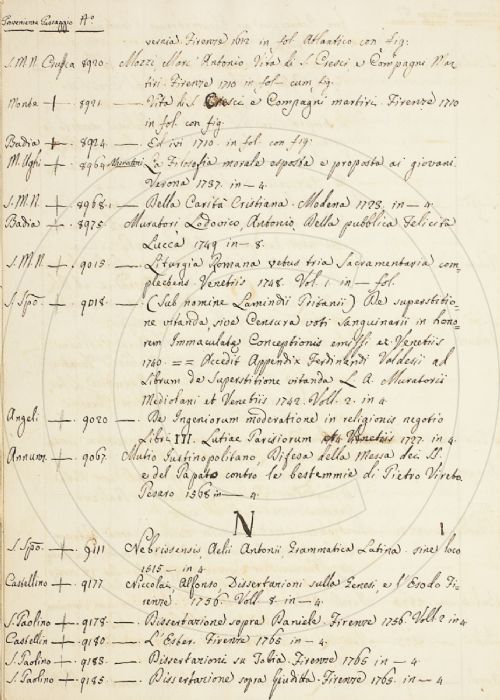 Provenienza Passaggio Nº
versia Firenze 1612 in fol Atlantico con fig:
S. M. N. Crusca 8920. Mozzi Marc' Antonio Vita di S. Cresci e Compagni Mar-
tiri. Firenze 1710 in fol. cum fig.
Monte + 8921 — Vita di S. Cresci e Compagni martiri. Firenze 1710
in fol. con fig.
Badia + 8924. — Ed ivi 1710. in fol. con fig:
M. Ughi + 8964 Muratori La Filosofia morale esposta e proposta ai giovani.
Verona 1737. in — 4.
S. M. N. + 8968. — Della Carità Cristiana. Modena 1723. in — 4.
Badia + 8975 Muratori Lodovico, Antonio, Della pubblica Felicità
Lucca 1749 in — 8.
S. M. N. + 9015. — Liturgia Romana vetus tria Sacramentaria com-
plectens. Venetiis 1748. Vol. 1. in — fol.
S. Spo. + 9018. — (Sub nomine Lamindii Pritanii) De superstitio-
ne vitanda, sive Censura voti sanguinarii in hono-
rem Immaculatæ Conceptionis emissi &c. Venetiis
1740. == Accedit Appendix Ferdinandi Valdesii ad
Librum de Superstitione vitanda L. A. Muratorii
Mediolani et Venetiis 1742. Voll. 2. in 4.
Angeli + 9020 — De Ingeniorum moderatione in religionis negotio
Libri III. Lutiae Parisiorum Venetiis 1727. in 4.
Annunz. + 9067. Mutio Justinopolitano, Difesa della Messa dei SS.
e del Papato contro le bestemmie di Pietro Vireto.
Pesaro 1568 in — 4.
N
1
S. Spo. + 9111 Nebrissensis, Aelii Antonii, Grammatica Latina. sine loco
1515 — in 4.
Castellino + 9177 Niccolai, Alfonso, Dissertazioni sulla Genesi, e l'Esodo Fi-
renze, 1756. Voll. 8. in — 4.
S. Paolino + 9178. — Dissertazione sopra Daniele. Firenze 1756. Voll. 2. in 4
Castellin + 9180. — L'Ester. Firenze 1765 in — 4.
S. Paolino + 9183. — Dissertazioni su Tobia. Firenze 1765 in — 4.
S. Paolino + 9185. — Dissertazione sopra Giuditta. Firenze 1765. in — 4